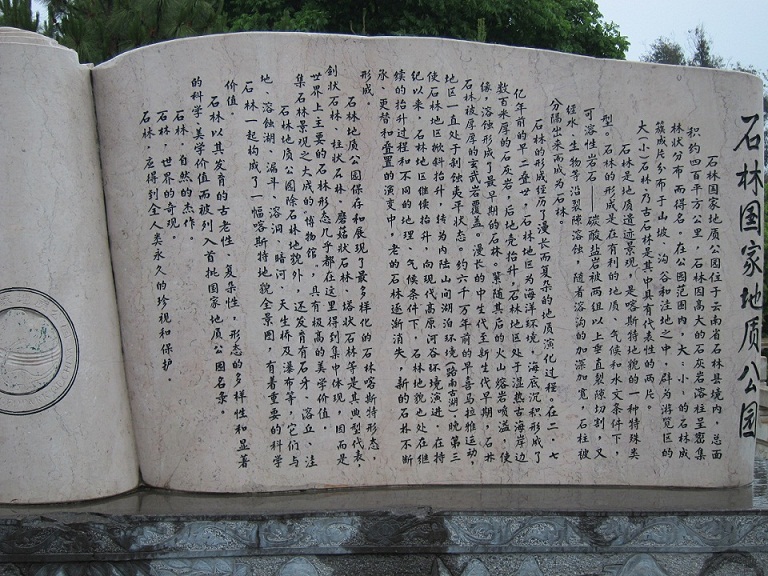 石林国家地质公园
石林国家地质公园位于云南省石林县境内，总面
积约四百平方公里，石林因高大的石灰岩溶柱呈密集
林状分布而得名，在公园范围内，大、小、的石林成
簇成片分布于山坡、沟谷和洼地之中，辟为游览区的
大、小石林乃古石林是其中具有代表性的两片。
石林是地质遗迹景观，是喀斯特地貌的一种特殊类
型。石林的形成是在有利的地质、气候和水文条件下，
可溶性岩石——碳酸盐岩被两组以上垂直裂隙切割，又
经水、生物等沿裂隙溶蚀，随着溶沟的加深加宽，石柱被
分隔出来而成为石林。
石林的形成经历了漫长而复杂的地质演化过程。在二·七
亿年前的早二叠世，石林地区为海洋环境，海底沉积形成了
数百米厚的石灰岩，后地壳抬升，石林地区处于湿热古海岸边
缘，溶蚀形成了最早期的石林，紧随其后的火山熔岩喷溢，使
石林被厚厚的玄武岩覆盖。漫长的中生代至新生代早期，石林
地区一直处于剥蚀夷平状态。约六千万年前的早喜马拉雅运动，
使石林地区掀斜抬升，转为内陆山间湖泊环境（路南古湖）。晚第三
纪以来，石林地区继续抬升，向现代高原河谷环境演进，在持
续的抬升过程和不同的地理、气候条件下，石林地貌也处在继
承、更替和叠置的演变中，老的石林逐渐消失，新的石林不断
形成。
石林地质公园保存和展现了最多样化的石林喀斯特形态，
剑状石林、柱状石林、蘑菇状石林、塔状石林等是其典型代表，
世界上主要的石林形态几乎都在这里得到集中体现，因而是
集石林景观之大成的“博物馆”，具有极高的美学价值。
石林地质公园除石林地貌外，还发育有石牙、溶丘、洼
地、溶蚀湖、漏斗、溶洞、暗河、天生桥及瀑布等，它们与
石林一起构成了一幅喀斯特地貌全景图，有着重要的科学
价值。
石林以其发育的古老性、复杂性，形态的多样性和显著
的科学、美学价值而被列入首批国家地质公园名录。
石林，自然的杰作。
石林，世界的奇观。
石林，应得到全人类永久的珍视和保护。